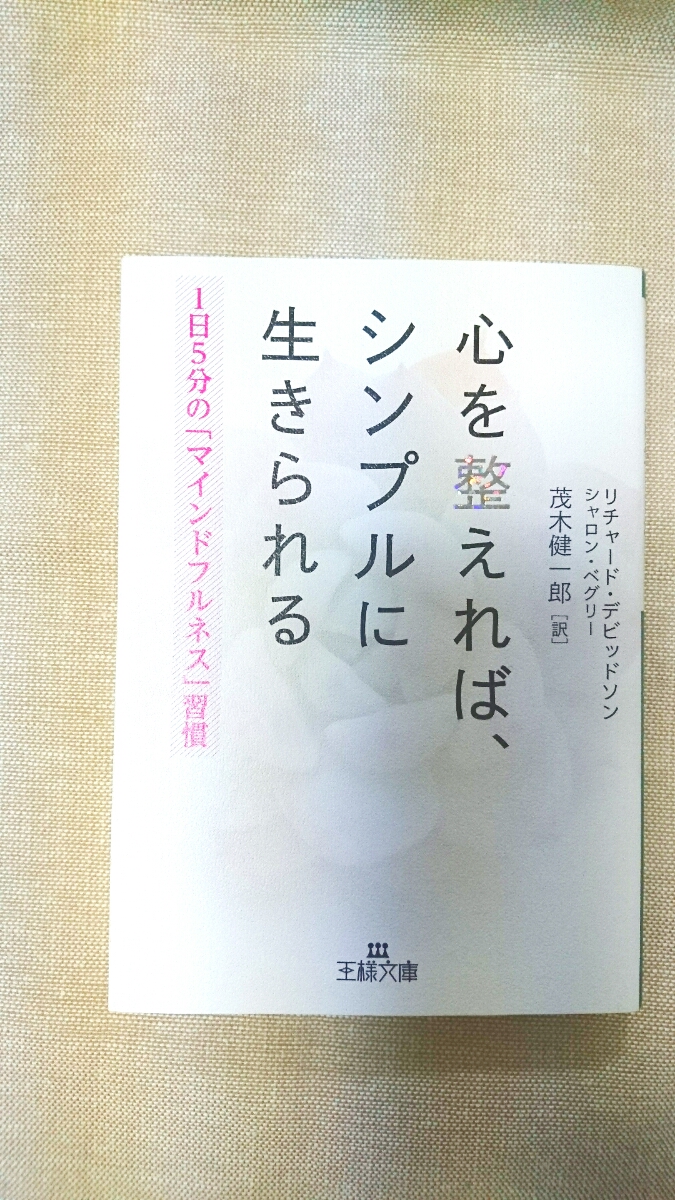 リチャード・デビッドソン
シャロン・ベグリー
茂木健一郎［訳］
心を整えれば、
シンプルに
生きられる
1日5分の「マインドフルネス」習慣
王様文庫